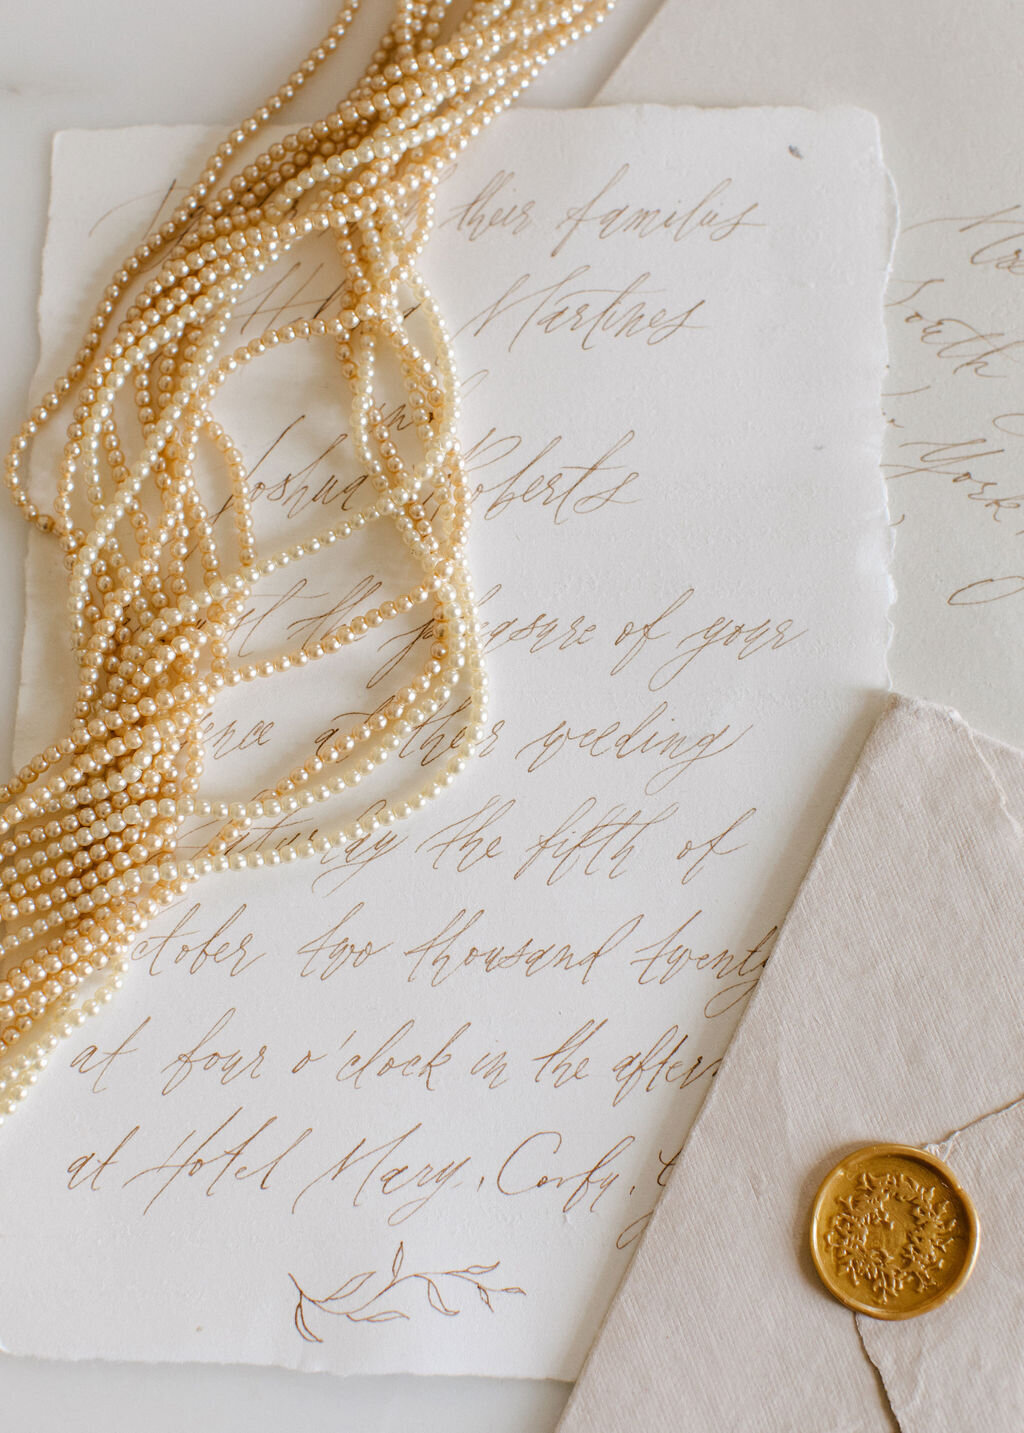 their families
Martines
Joshua Roberts
the pleasure of your
at their weeding
Saturday the fifth of
ctober two thousand twenty
at four o'clock in the after
at Hotel Mary, Corfu,
South
York,